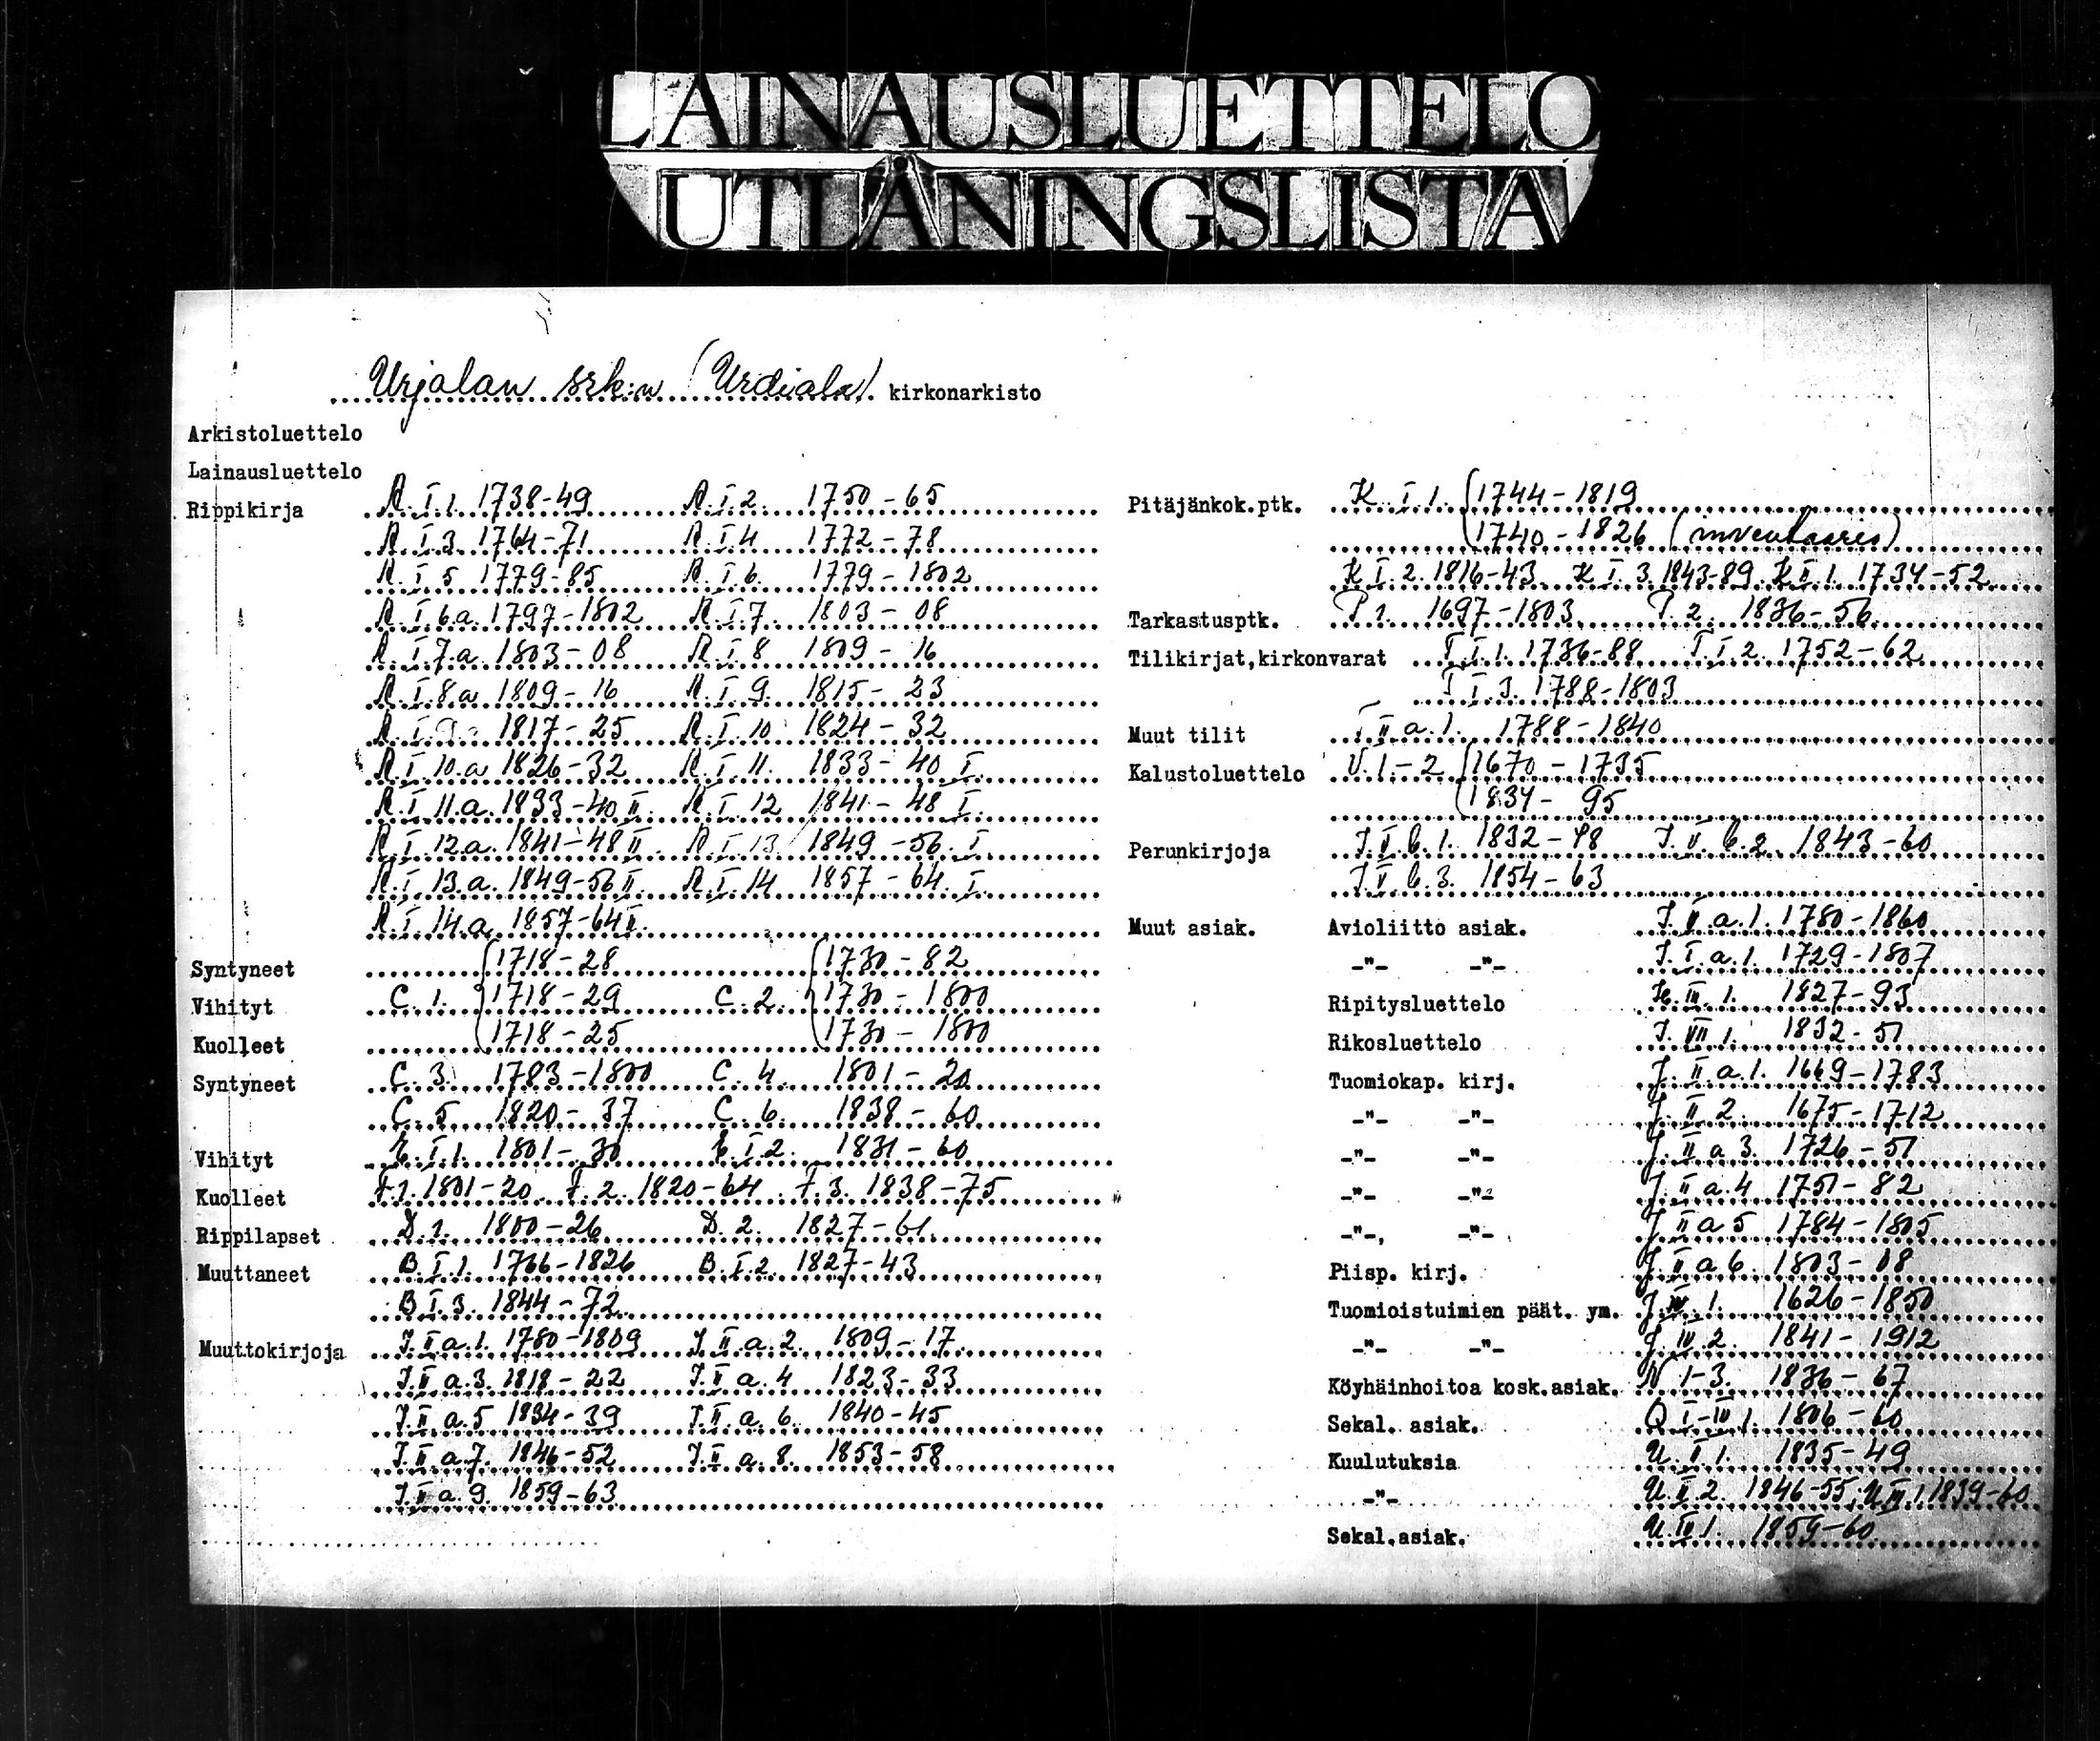 LAINAUSLUETTELO
UTLÅNINGSLISTA
Urjalan srk:n (Urdiala) kirkonarkisto
Arkistoluettelo
Lainausluettelo
Rippikirja A.I.1. 1738-49 A.I.2. 1750-65
A.I.3. 1764-71 A.I.4 1772-78
A.I.5 1779-85 A.I.6. 1779-1802
A.I.6.a. 1797-1802 A.I.7. 1803-08
A.I.7.a. 1803-08 A.I.8 1809-16
A.I.8.a 1809-16 A.I.9. 1815-23
A.I.9.a 1817-25 A.I.10 1824-32
A.I.10.a 1826-32 A.I.11. 1833-40 I.
A.I.11.a. 1833-40 II. A.I.12 1841-48 I.
A.I.12.a. 1841-48 II. A.I.13 1849-56. I.
A.I.13.a. 1849-56 II. A.I.14 1857-64. I.
A.I.14.a. 1857-64 II.
Syntyneet 1718-28 1730-82
Vihityt C.1. 1718-29 C.2. 1730-1800
Kuolleet 1718-25 1730-1800
Syntyneet C.3. 1783-1800 C.4. 1801-20
C.5 1820-37 C.6. 1838-60
Vihityt E.I.1. 1801-30 E.I.2. 1831-60
Kuolleet F.1. 1801-20. F.2. 1820-64. F.3. 1838-75
Rippilapset D.1. 1800-26 D.2. 1827-61.
Muuttaneet B.I.1. 1766-1826 B.I.2. 1827-43
B.I.3. 1844-72.
Muuttokirjoja I.II.a.1. 1780-1809 I.II.a.2. 1809-17.
I.II.a.3. 1818-22 I.II.a.4 1823-33
I.II.a.5 1834-39 I.II.a.6. 1840-45
I.II.a.7. 1846-52 I.II.a.8. 1853-58
I.II.a.9. 1859-63
Pitäjänkok.ptk. K.I.1. 1744-1819
1740-1826 (inventaario)
K.I.2. 1816-43. K.I.3. 1843-89. K.II.1. 1734-52
Tarkastusptk. P.1. 1697-1803. P.2. 1836-56.
Tilikirjat,kirkonvarat T.I.1. 1736-88 T.I.2. 1752-62
T.I.3. 1788-1803
Muut tilit T.II.a.1. 1788-1840
Kalustoluettelo V.1.-2. 1670-1735
1834-95
Perunkirjoja I.V.b.1. 1832-48 I.V.b.2. 1843-60
I.V.b.3. 1854-63
Muut asiak. Avioliitto asiak. I.V.a.1. 1780-1860
-"- -"- I.I.a.1. 1729-1807
Ripitysluettelo H.III.1. 1827-93
Rikosluettelo I.VII.1. 1832-51
Tuomiokap. kirj. J.II.a.1. 1669-1783
-"- -"- J.II.2. 1675-1712
-"- -"- J.II.a.3. 1726-51
-"- -"- J.II.a.4 1751-82
-"-, -"- J.II.a.5 1784-1805
Piisp. kirj. J.II.a.6. 1803-08
Tuomioistuimien päät. ym. J.IV.1. 1626-1850
-"- -"- J.IV.2. 1841-1912
Köyhäinhoitoa kosk.asiak. N 1-3. 1836-67
Sekal. asiak. Q I-IV 1. 1806-60
Kuulutuksia U.II.1. 1835-49
-"- U.II.2. 1846-55; U.III.1. 1839-60
Sekal.asiak. U.IV.1. 1859-60.